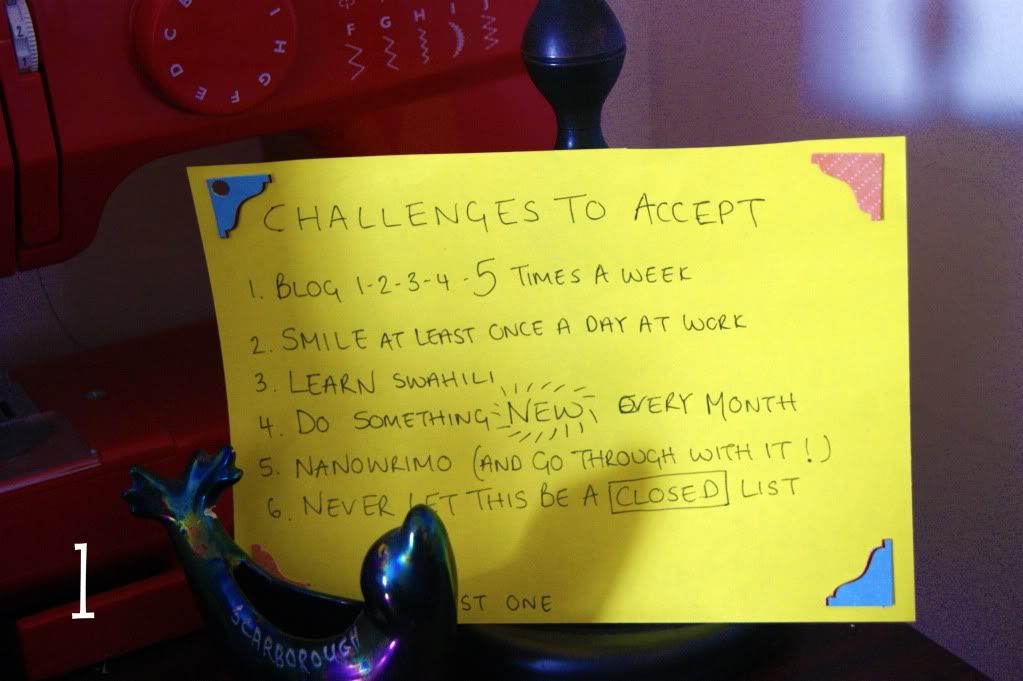 2
1
B
C
D
E
F
G
H
I
F
G
H
I
CHALLENGES TO ACCEPT
1. BLOG 1-2-3-4-5 TIMES A WEEK
2. SMILE AT LEAST ONCE A DAY AT WORK
3. LEARN SWAHILI
4. DO SOMETHING NEW EVERY MONTH
5. NANOWRIMO (AND GO THROUGH WITH IT!)
6. NEVER LET THIS BE A CLOSED LIST
ONE
SCARBOROUGH
1